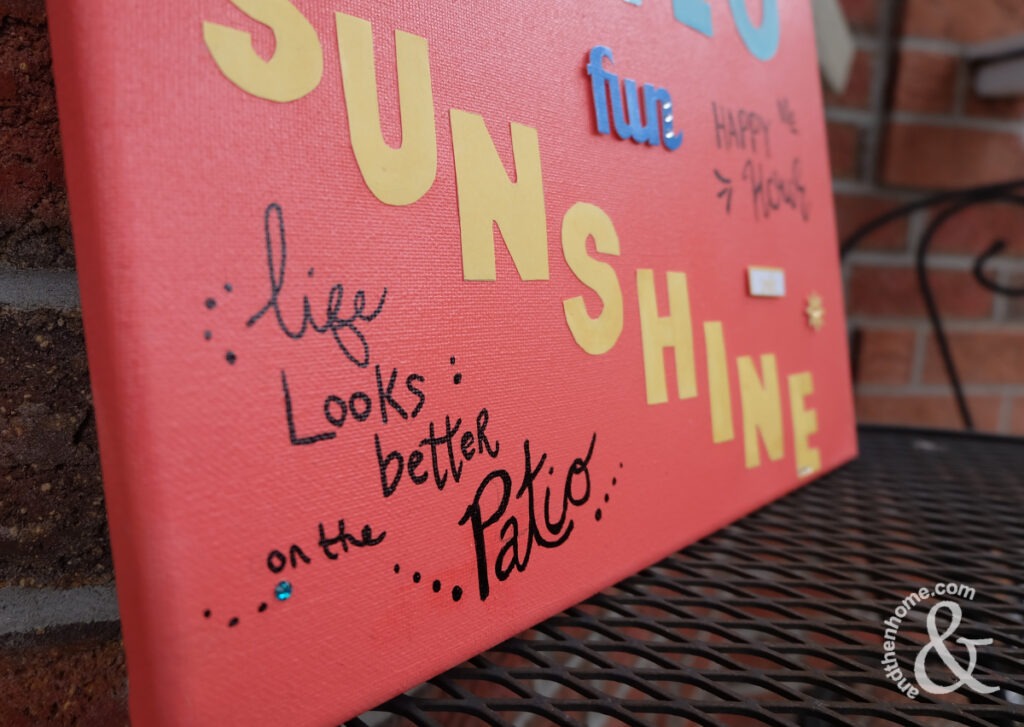 fun
HAPPY
Hour
SUNSHINE
life
Looks
better
on the Patio
andthenhome.com
&